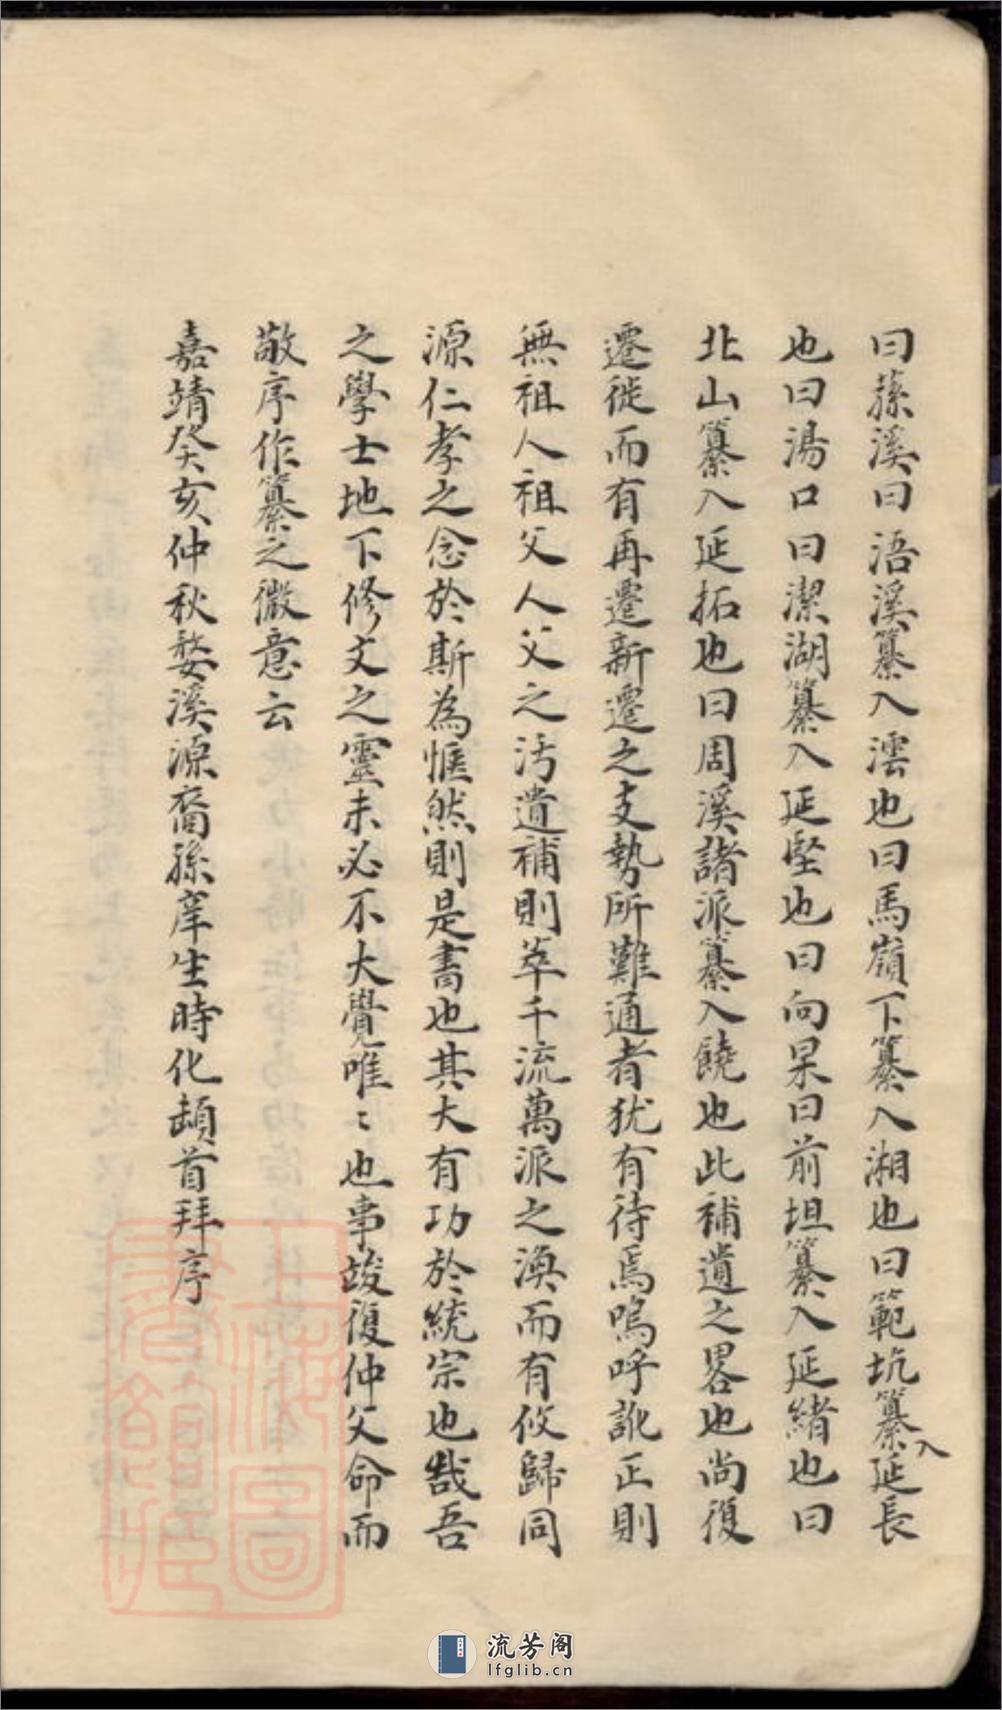 曰蓀溪曰浯溪纂入澐也曰馬嶺下纂入湘也曰範坑纂入延長
也曰湯口曰潔湖纂入延堅也曰向杲曰前坦纂入延緒也曰
北山纂入延拓也曰周溪諸派纂入饒也此補遺之畧也尚復
遷徙而有再遷新遷之支勢所難通者犹有待焉嗚呼訛正則
無祖人祖父人父之汚遺補則萃千流萬派之渙而有攸歸同
源仁孝之念於斯為愜然則是書也其大有功於統宗也哉吾
之學士地下修文之靈未必不大覺唯〻也事竣復仲父命而
敬序作纂之微意云
嘉靖癸亥仲秋婺溪源裔孫庠生時化頓首拜序
上海圖書館藏
流芳阁
lfglib.cn